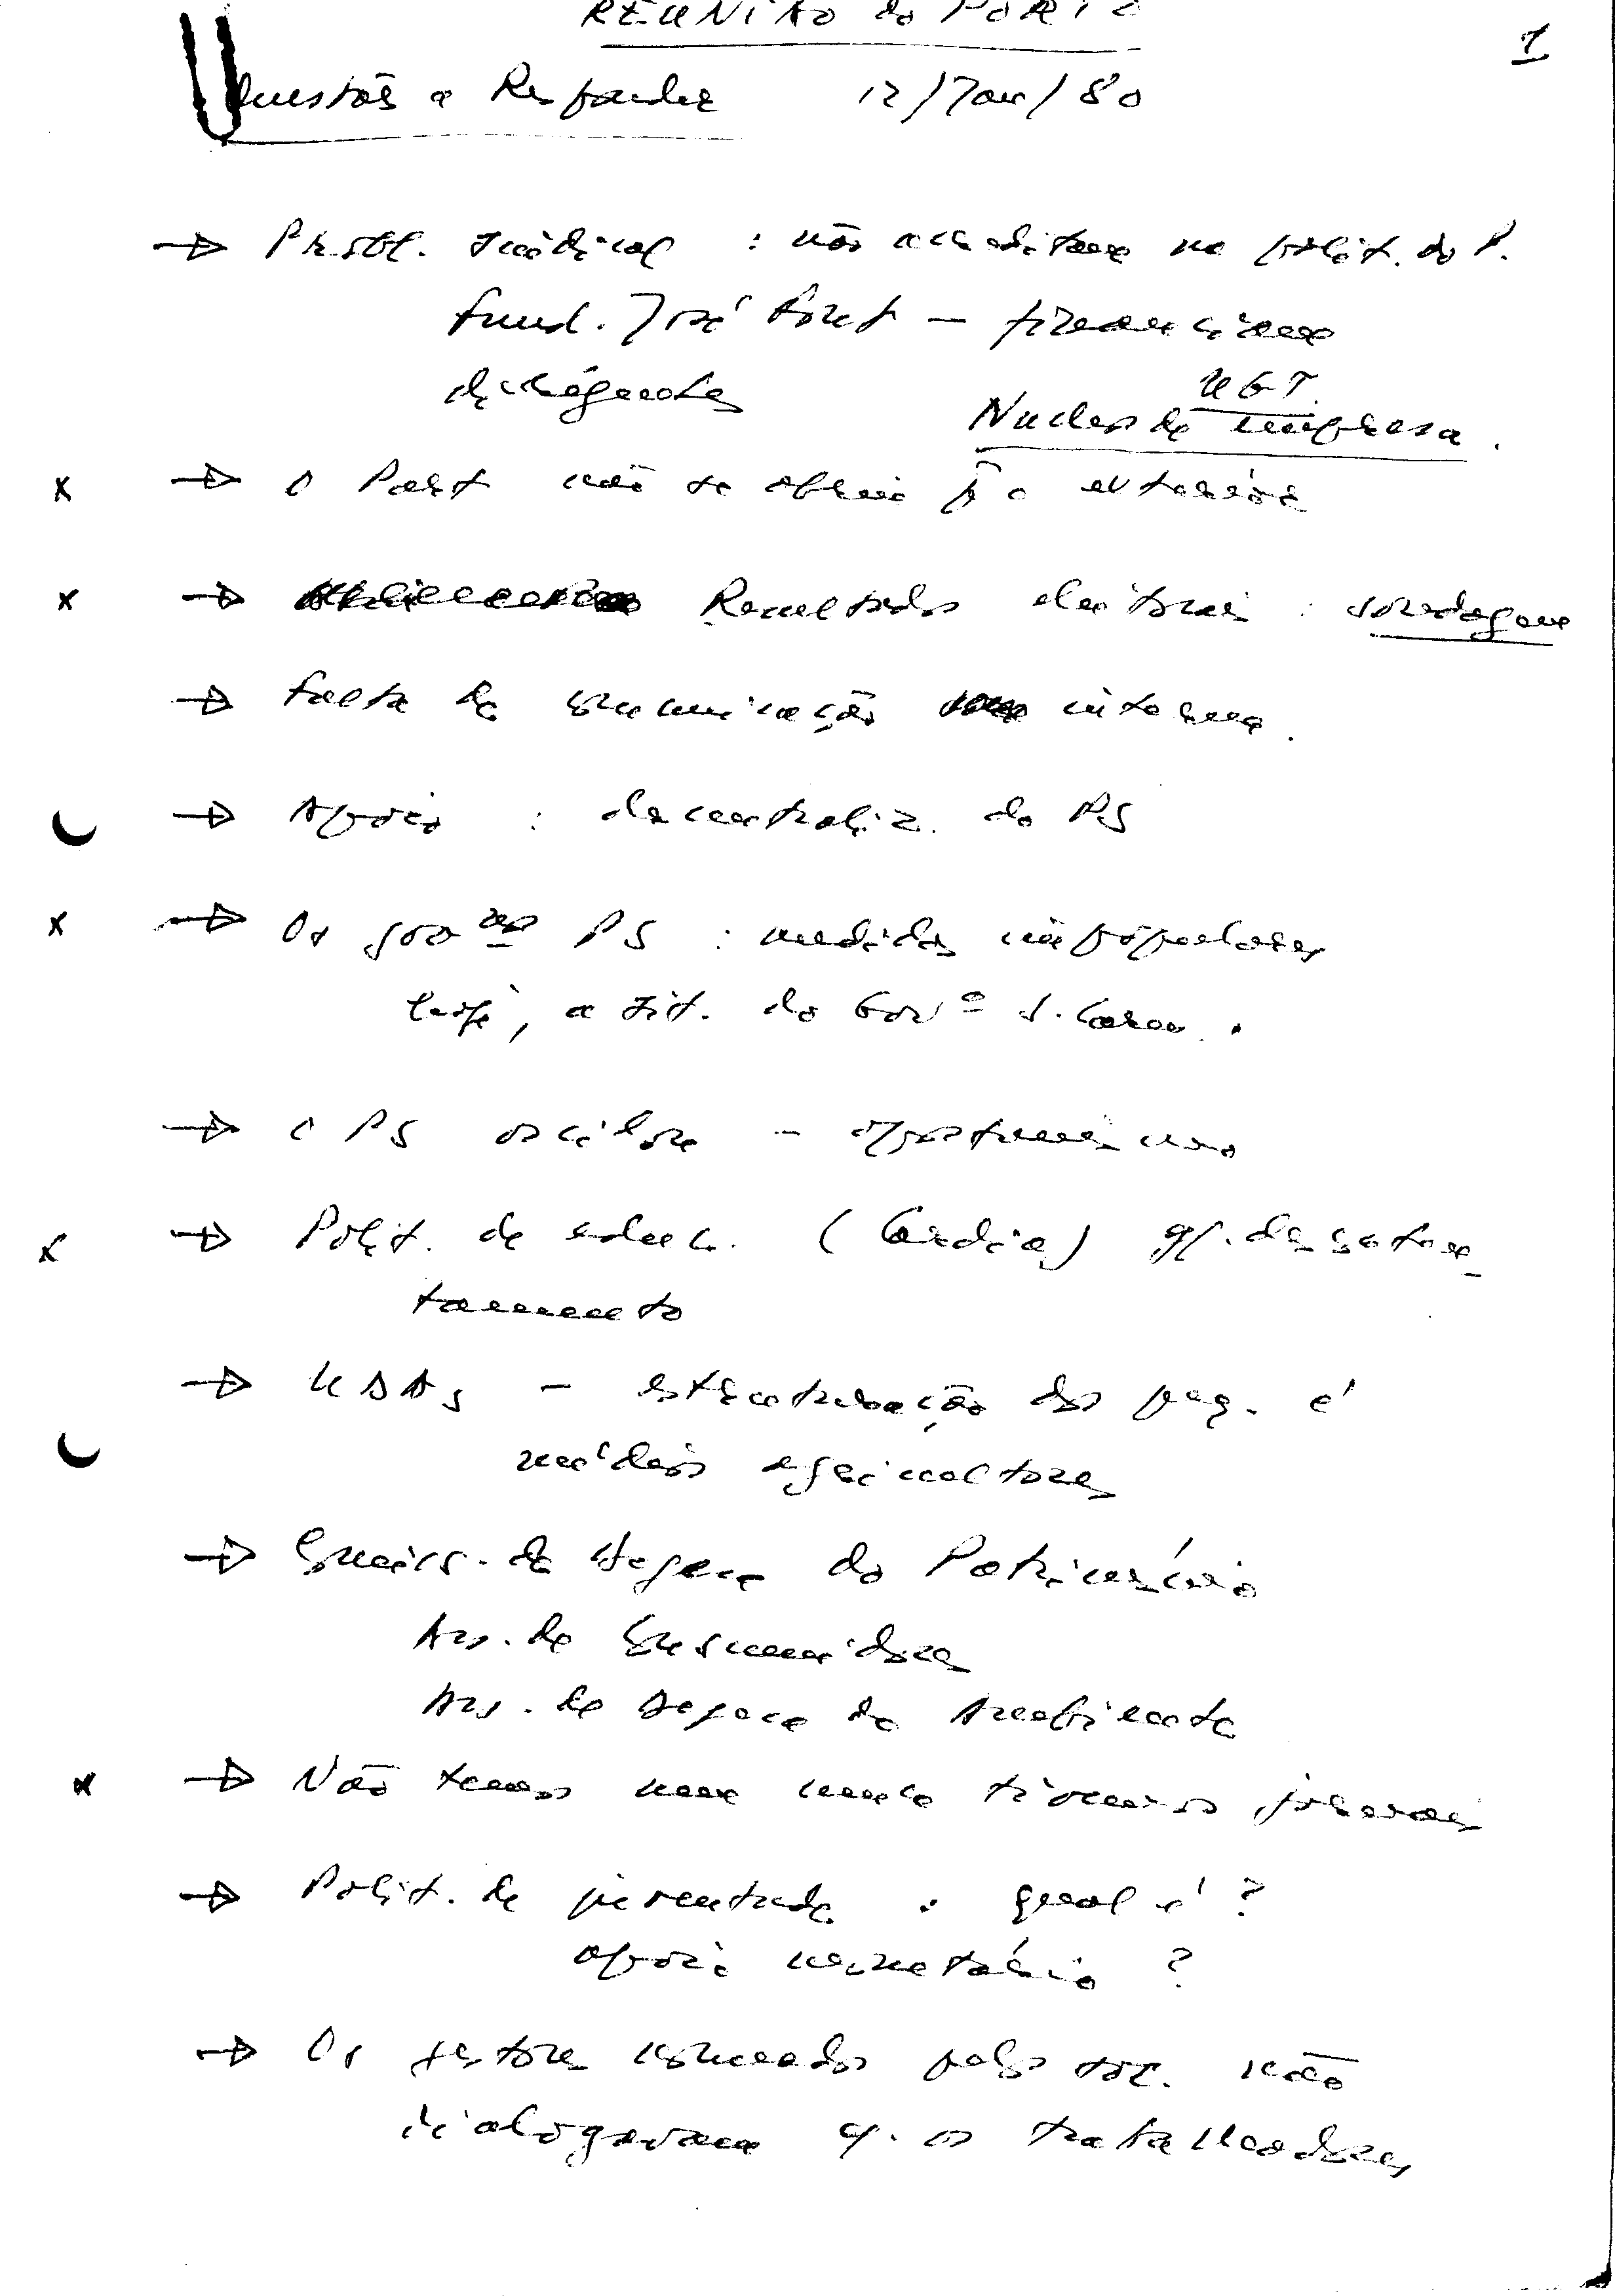 REUNIÃO do PORTO
1
Questões a Responder 12/Jan/80
→ Probl. Sindical : não acreditam na polit. do P.
Fund. José Font – financiam
dirigentes
UGT
Nucleos de empresa.
x → O Part não se abriu p̃ o exterior
x → Resultados eleitorais : sondagens
→ Falta de comunicação interna.
→ Apoio : descentraliz. do PS
x → Os govnos PS : medidas impopulares
hoje, a sit. do Govº S. Carn.
→ O PS oscilou – oportunismo
x → Polit. de educ. (Cardia) gr. descontentamento
→ UDAs – estruturação dos peq. e
médios agricultores
→ Comiss. de Defesa do Património
Ass. de Consumidores
Ass. de Defesa do Ambiente
x → Não temos nem nunca tivemos jornais
→ Polit. de juventude : qual é ?
apoio monetário ?
→ Os gestores nomeados pelo soc. não
dialogavam c/. os trabalhadores